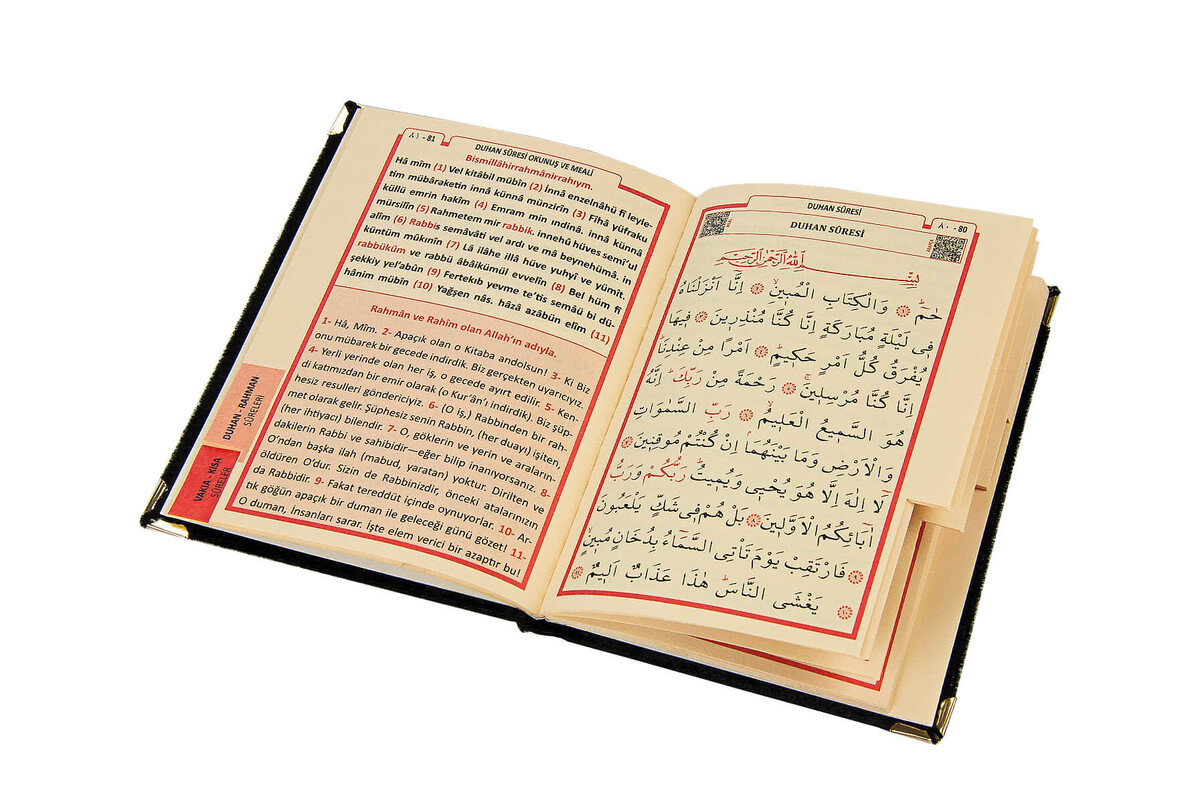 ٨١ - 81
DUHAN SÛRESİ OKUNUŞ VE MEALİ
Bismillâhirrahmânirrahıym.
Hâ mîm (1) Vel kitâbil mübîn (2) İnnâ enzelnâhü fî leyle-
tim mübâraketin innâ künnâ münzirîn (3) Fîhâ yüfraku
küllü emrin hakîm (4) Emram min indinâ. innâ künnâ
mürsilîn (5) Rahmetem mir rabbik. innehû hüves semî'ul
alîm (6) Rabbis semâvâti vel ardı ve mâ beynehümâ. in
küntüm mûkınîn (7) Lâ ilâhe illâ hüve yuhyî ve yümît.
rabbüküm ve rabbü âbâikümül evvelîn (8) Bel hüm fî
şekkiy yel'abûn (9) Fertekıb yevme te'tis semâü bi dü-
hânim mübîn (10) Yağşen nâs. hâzâ azâbün elîm (11)
Rahmân ve Rahîm olan Allah'ın adıyla.
1- Hâ, Mîm. 2- Apaçık olan o Kitaba andolsun! 3- Ki Biz
onu mübarek bir gecede indirdik. Biz gerçekten uyarıcıyız.
4- Yerli yerinde olan her iş, o gecede ayırt edilir. 5- Ken-
di katımızdan bir emir olarak (o Kur'ân'ı indirdik). Biz şüp-
hesiz resulleri göndericiyiz. 6- (O iş,) Rabbinden bir rah-
met olarak gelir. Şüphesiz senin Rabbin, (her duayı) işiten,
(her ihtiyacı) bilendir. 7- O, göklerin ve yerin ve araların-
dakilerin Rabbi ve sahibidir—eğer bilip inanıyorsanız. 8-
O'ndan başka ilah (mabud, yaratan) yoktur. Dirilten ve
öldüren O'dur. Sizin de Rabbinizdir, önceki atalarınızın
da Rabbidir. 9- Fakat tereddüt içinde oynuyorlar. 10- Ar-
tık göğün apaçık bir duman ile geleceği günü gözet! 11-
O duman, İnsanları sarar. İşte elem verici bir azaptır bu!
DUHAN - RAHMAN
SÛRELERİ
VAKIA - KISA
SÛRELER
DUHAN SÛRESİ
٨٠ - 80
DUHAN SÛRESİ
بِسْمِ اللّٰهِ الرَّحْمٰنِ الرَّحِيمِ
حٰمٓ ۚ ﴿١﴾ وَالْكِتَابِ الْمُبٖينِۙ ﴿٢﴾ اِنَّٓا اَنْزَلْنَاهُ
فٖى لَيْلَةٍ مُبَارَكَةٍ اِنَّا كُنَّا مُنْذِرٖينَ ﴿٣﴾ فٖيهَا
يُفْرَقُ كُلُّ اَمْرٍ حَكٖيمٍۙ ﴿٤﴾ اَمْرًا مِنْ عِنْدِنَاؕ
اِنَّا كُنَّا مُرْسِلٖينَۚ ﴿٥﴾ رَحْمَةً مِنْ رَبِّكَؕ اِنَّهُ
هُوَ السَّمٖيعُ الْعَلٖيمُۙ ﴿٦﴾ رَبِّ السَّمٰوَاتِ
وَالْاَرْضِ وَمَا بَيْنَهُمَاۘ اِنْ كُنْتُمْ مُوقِنٖينَ ﴿٧﴾
لَٓا اِلٰهَ اِلَّا هُوَ يُحْيٖى وَيُمٖيتُؕ رَبُّكُمْ وَرَبُّ
اٰبَٓائِكُمُ الْاَوَّلٖينَ ﴿٨﴾ بَلْ هُمْ فٖى شَكٍّ يَلْعَبُونَ
﴿٩﴾ فَارْتَقِبْ يَوْمَ تَاْتِى السَّمَٓاءُ بِدُخَانٍ مُبٖينٍۙ
﴿١٠﴾ يَغْشَى النَّاسَؕ هٰذَا عَذَابٌ اَلٖيمٌ